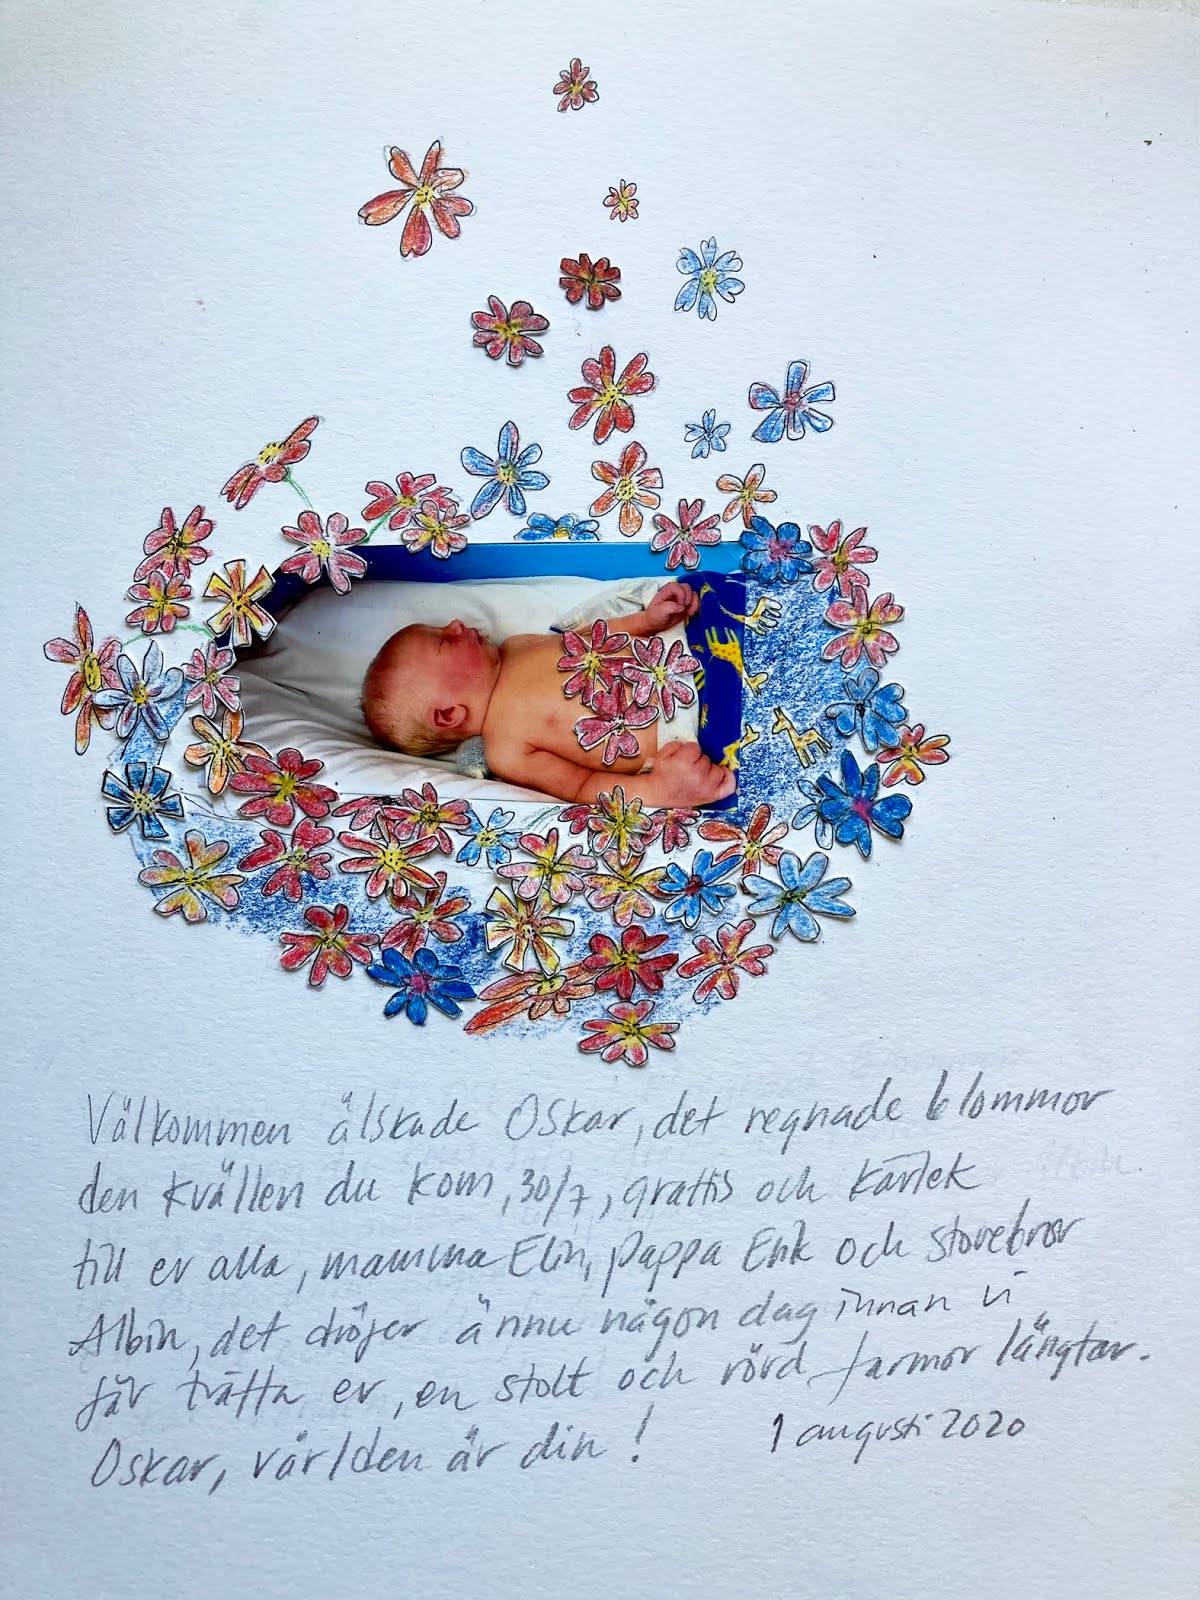 Välkommen älskade Oskar, det regnade blommor
den kvällen du kom, 30/7, grattis och kärlek
till er alla, mamma Elin, pappa Erik och storebror
Albin, det dröjer ännu någon dag innan vi
får träffa er, en stolt och rörd farmor längtar.
Oskar, världen är din!
1 augusti 2020